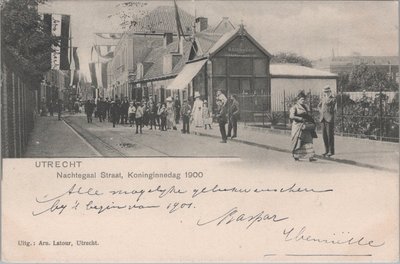 UTRECHT
Nachtegaal Straat, Koninginnedag 1900
Alle mogelijke
by 't begin van 1901.
Uitg.: Arn. Latour, Utrecht.